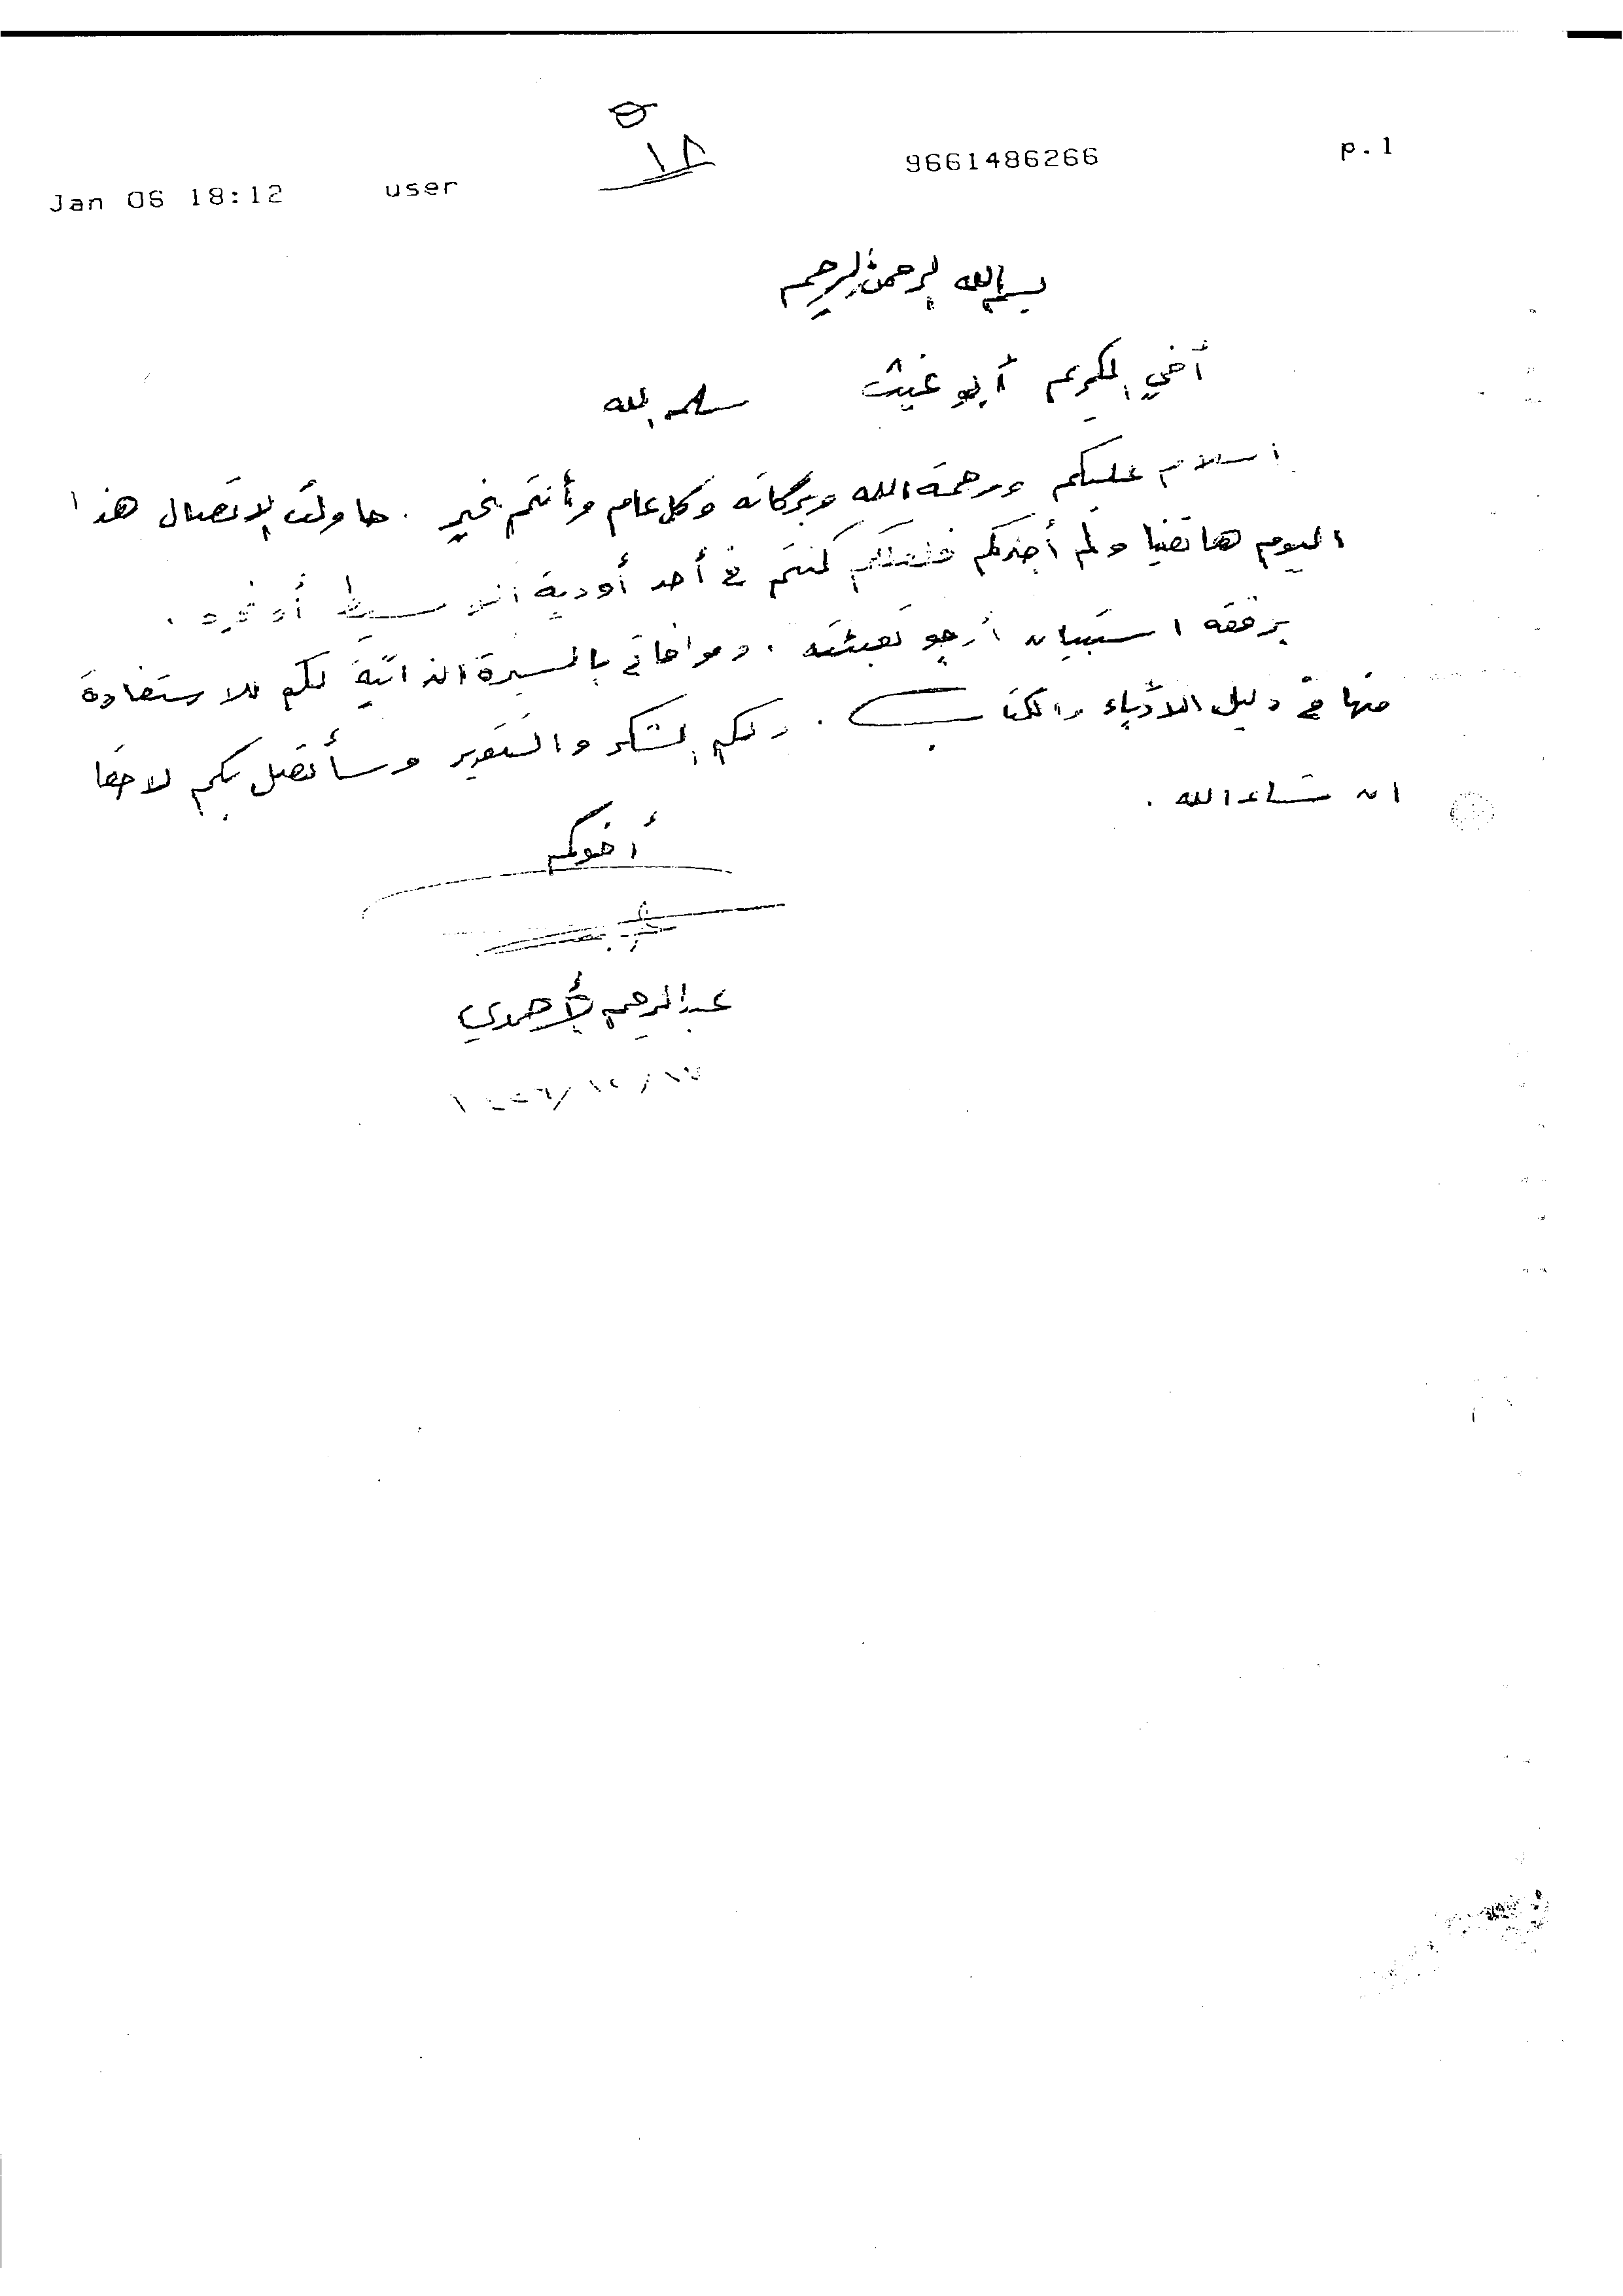 Jan 06 18:12 user 9661486266 p.1
بسم الله الرحمن الرحيم
أخي الكريم أبو غيث سلمه الله
السلام عليكم ورحمة الله وبركاته وكل عام وأنتم بخير . حاولت الاتصال هذا
اليوم هاتفيا ولم أجدكم فلعلكم كنتم في أحد أودية أو غيره .
برفقه استبيان أرجو تعبئته . وموافاتي بالسيرة الذاتية لكم للاستفادة
منها في دليل الأدباء والكتاب . ولكم الشكر والتقدير وسأتصل بكم لاحقا
ان شاء الله .
أخوكم
عبدالرحيم الأحمدي